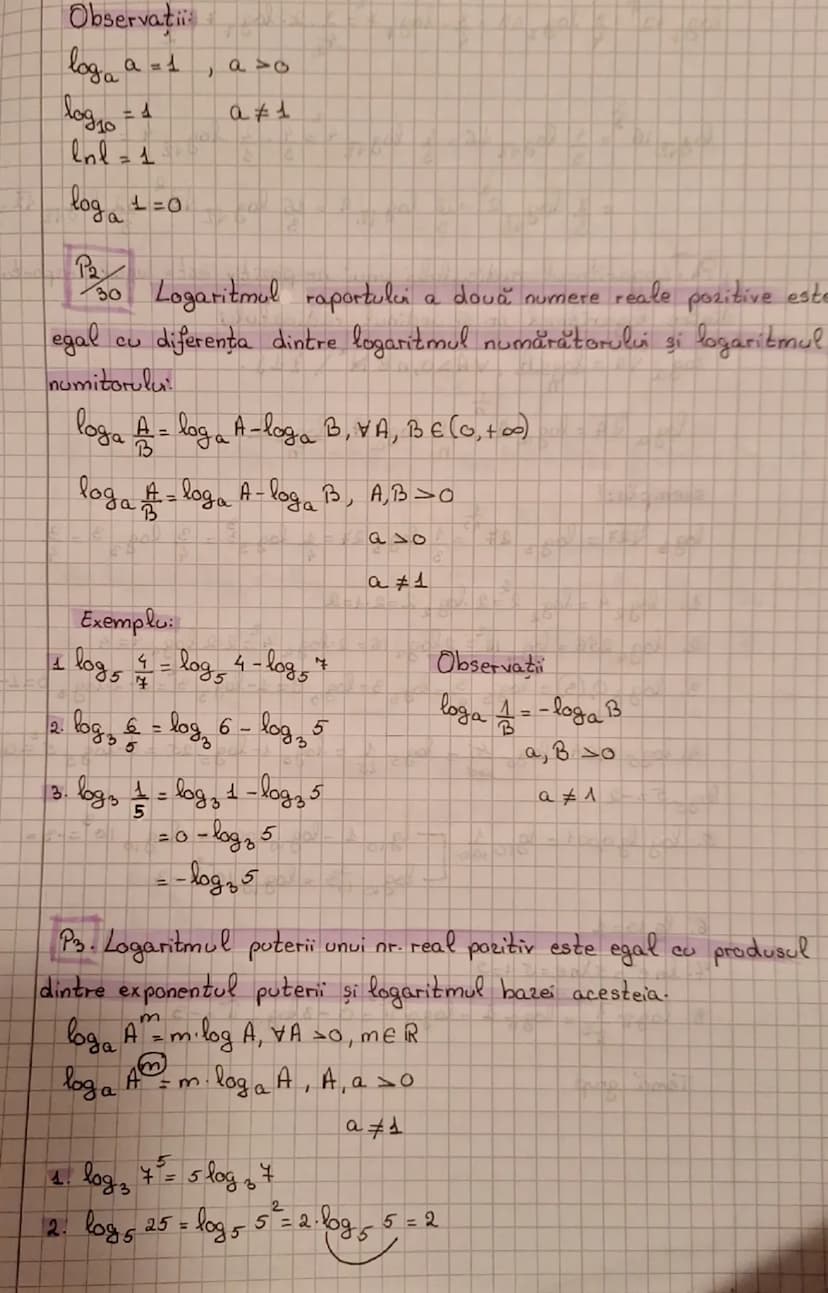 Observații:
logₐ a = 1 , a > 0
log₁₀ = 1 a ≠ 1
ln l = 1
logₐ 1 = 0
P2/30 Logaritmul raportului a două numere reale pozitive este
egal cu diferența dintre logaritmul numărătorului și logaritmul
numitorului:
logₐ A/B = logₐ A - logₐ B, ∀ A, B ∈ (0, +∞)
logₐ A/B = logₐ A - logₐ B, A, B > 0
a > 0
a ≠ 1
Exemplu:
1 log₅ 4/7 = log₅ 4 - log₅ 7
2. log₃ 6/5 = log₃ 6 - log₃ 5
3. log₃ 1/5 = log₃ 1 - log₃ 5
= 0 - log₃ 5
= - log₃ 5
Observații
logₐ 1/B = - logₐ B
a, B > 0
a ≠ 1
P3. Logaritmul puterii unui nr. real pozitiv este egal cu produsul
dintre exponentul puterii și logaritmul bazei acesteia.
logₐ Aᵐ = m · log A, ∀ A > 0, m ∈ R
logₐ Aᵐ = m · logₐ A , A, a > 0
a ≠ 1
1. log₃ 7⁵ = 5 log₃ 7
2. log₅ 25 = log₅ 5² = 2 · log₅ 5 = 2